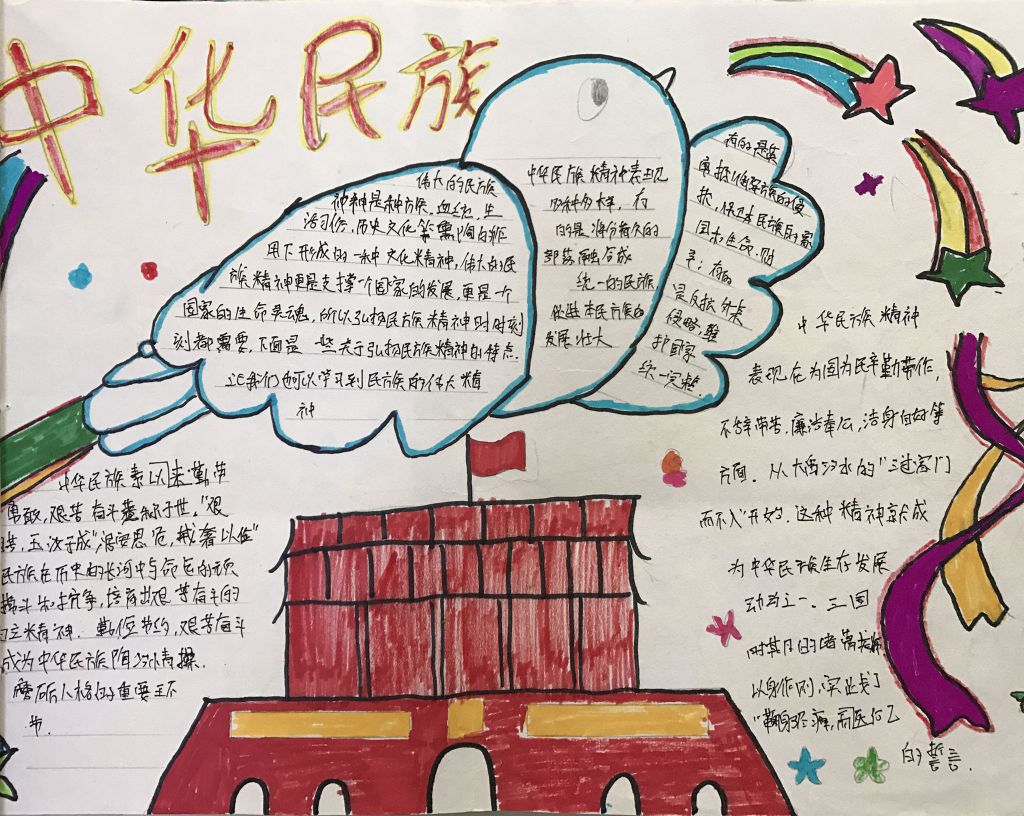 中华民族
伟大的民族
神神是种族、血统、生
活习俗、历史文化等
用下形成的一种文化精神,伟大的民
族精神更是支撑一个国家的发展,更是一个
国家的生命灵魂,所以弘扬民族精神时时刻
刻都需要,下面是一些关于弘扬民族精神的特点.
让我们也可以学习到民族的伟大精
神
中华民族精神表现
四种分样,有
的是
部落融合成
统一的民族
促进本民族的
发展壮大
有的是英
勇抵
抗,保卫本民族的家
园和生命,
有的
是反抗外来
侵略,维
护国家
统一完整.
中华民族素以来勤劳
勇敢,艰苦奋斗著称于世,"艰
玉汝于成"居安思危,戒奢以俭"
民族在历史的长河中与命运的顽
搏斗和抗争,培育出艰苦奋斗的
精神.勤俭节约,艰苦奋斗
成为中华民族陶冶情操.
磨砺人格的重要环
节.
中华民族精神
表现在为国为民辛勤劳作,
不辞劳苦.廉洁奉公,洁身自好等
方面.从大禹治水的"三过家门
而不入"开始.这种精神就成
为中华民族生存发展
动力之一.三国
时期的诸葛
以身作则,实践了
"鞠躬尽瘁,而后已
的誓言.